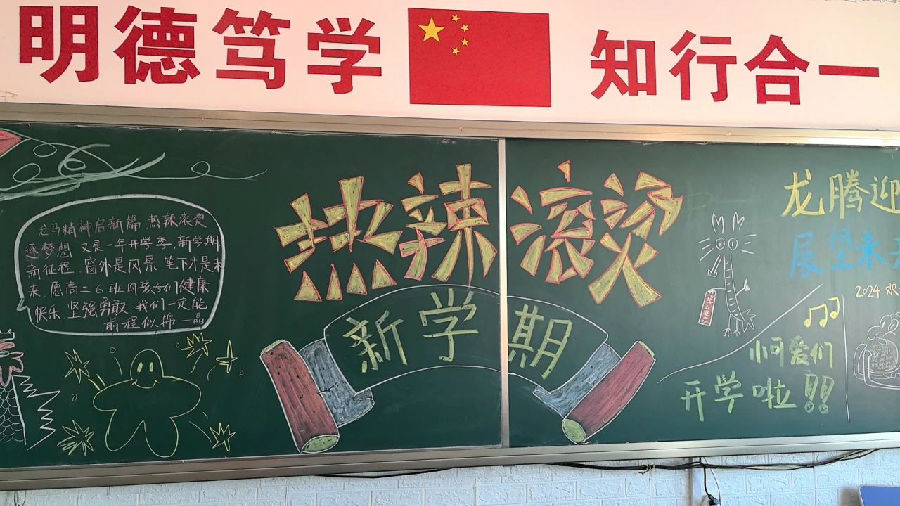 明德笃学 知行合一
龙马精神启新篇 热辣滚烫
逐梦想 又是一年开学季 新学期
新征程 窗外是风景 笔下才是未
来 愿高二6班同学们健康
快乐 坚强勇敢 我们一定能
前程似锦
热辣滚烫
新学期
龙腾迎
展望未来
小可爱们
开学啦!!
2024 欢